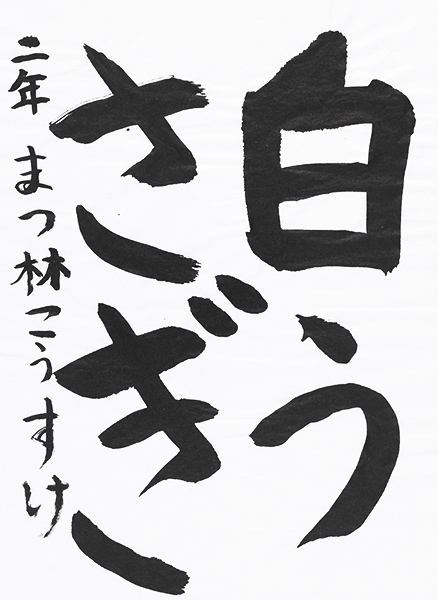 白う
さぎ
二年 まつ林こうすけ